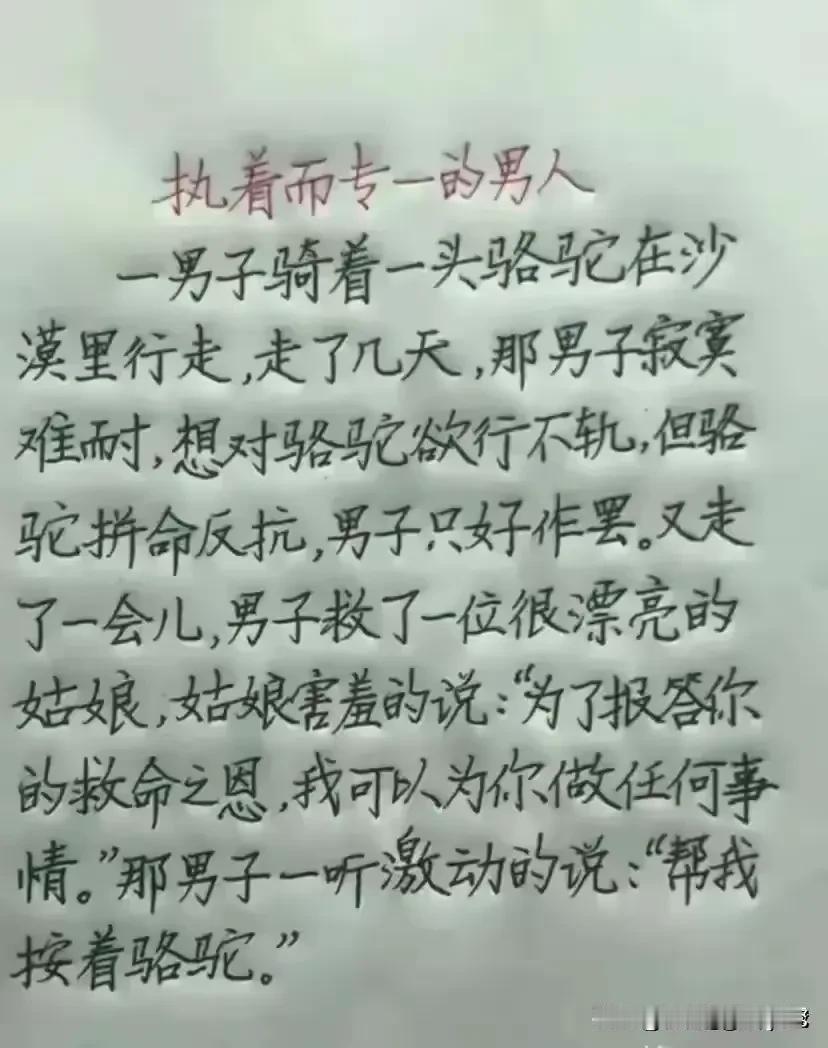 执着而专一的男人
一男子骑着一头骆驼在沙
漠里行走,走了几天,那男子寂寞
难耐,想对骆驼欲行不轨,但骆
驼拼命反抗,男子只好作罢。又走
了一会儿,男子救了一位很漂亮的
姑娘,姑娘害羞的说:“为了报答你
的救命之恩,我可以为你做任何事
情。”那男子一听激动的说:“帮我
按着骆驼。”